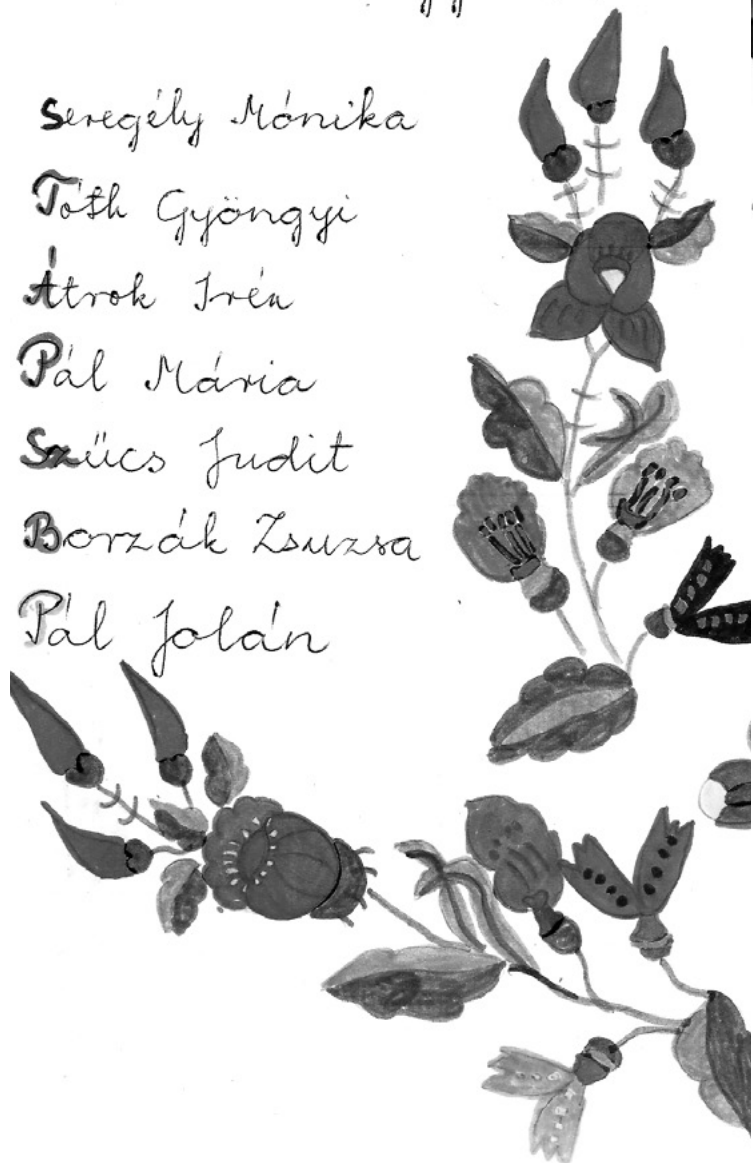 Seregély Mónika
Tóth Gyöngyi
Átrok Irén
Pál Mária
Szűcs Judit
Borzák Zsuzsa
Pál Jolán